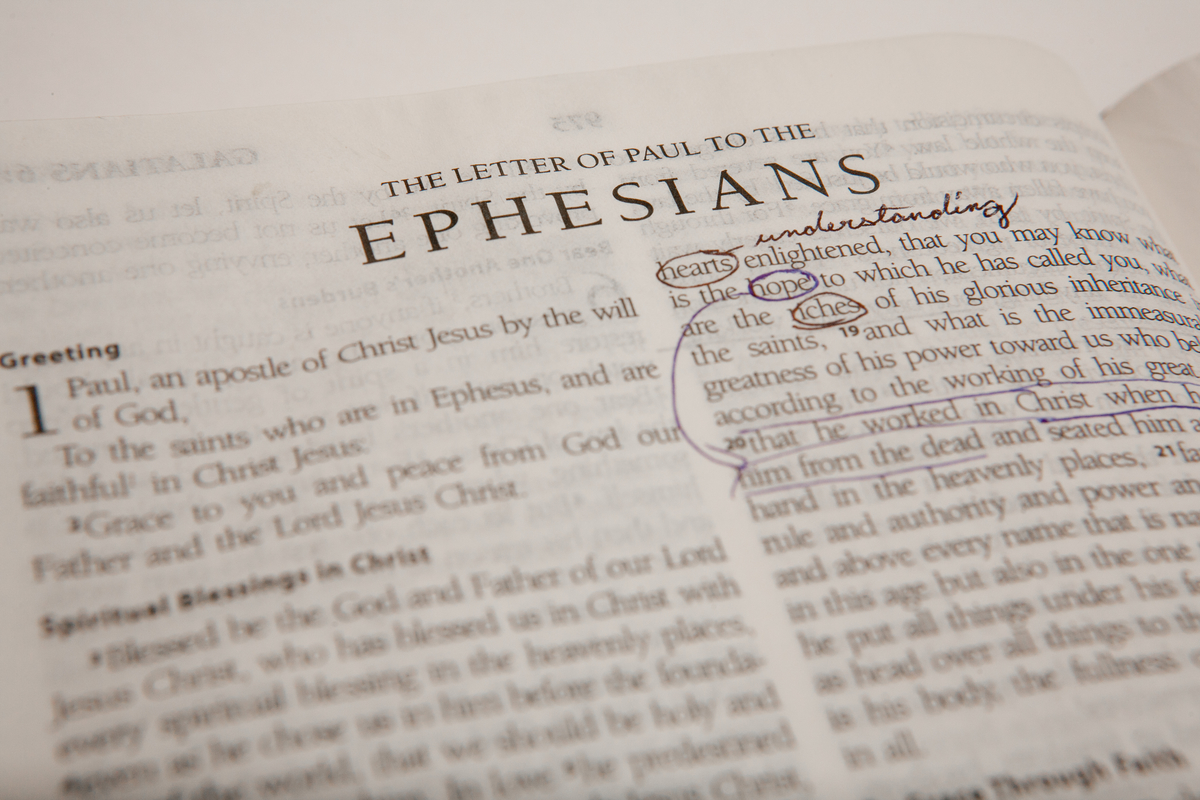 THE LETTER OF PAUL TO THE
EPHESIANS
Greeting
1 Paul, an apostle of Christ Jesus by the will
of God,
To the saints who are in Ephesus, and are
faithful¹ in Christ Jesus:
2Grace to you and peace from God our
Father and the Lord Jesus Christ.
Spiritual Blessings in Christ
3Blessed be the God and Father of our Lord
Jesus Christ, who has blessed us in Christ with
every spiritual blessing in the heavenly places,
as he chose us in him before the founda-
of the world, that we should be holy and
In love he predestined
understanding
hearts enlightened, that you may know what
is the hope to which he has called you, what
are the riches of his glorious inheritance
the saints, 19and what is the immeasura
greatness of his power toward us who bel
according to the working of his great
20that he worked in Christ when h
him from the dead and seated him a
hand in the heavenly places, 21fa
rule and authority and power an
and above every name that is na
in this age but also in the one
he put all things under his f
as head over all things to th
is his body, the fullness
in all.
Through Faith
GALATIANS 6
975
by the Spirit, let us also wa
us not become conceited
envying one another
Bear One Another's Burdens